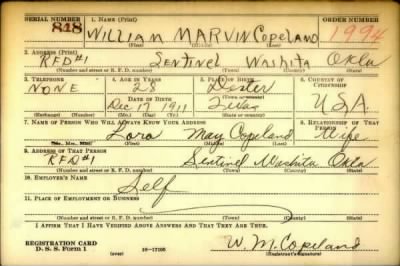 SERIAL NUMBER 1. NAME (Print) ORDER NUMBER
848 WILLIAM MARVIN Copeland 1994
(First) (Middle) (Last)
2. ADDRESS (Print)
RFD#1 Sentinel Washita Okla
(Number and street or R. F. D. number) (Town) (County) (State)
3. TELEPHONE 4. AGE IN YEARS 5. PLACE OF BIRTH 6. COUNTRY OF CITIZENSHIP
NONE 28 Dester U.S.A.
DATE OF BIRTH (Town or county)
Dec 17 1911 Texas
(Mo.) (Day) (Yr.) (State or country)
7. NAME OF PERSON WHO WILL ALWAYS KNOW YOUR ADDRESS 8. RELATIONSHIP OF THAT PERSON
Lora May Copeland Wife
(Mr., Mrs., Miss) (First) (Middle) (Last)
9. ADDRESS OF THAT PERSON
RFD#1 Sentinel Washita Okla
(Number and street or R. F. D. number) (Town) (County) (State)
10. EMPLOYER'S NAME
Self
11. PLACE OF EMPLOYMENT OR BUSINESS
(Number and street or R. F. D. number) (Town) (County) (State)
I AFFIRM THAT I HAVE VERIFIED ABOVE ANSWERS AND THAT THEY ARE TRUE.
REGISTRATION CARD
D. S. S. Form 1 (over) 16-17105 W. M. Copeland
(Registrant's signature)